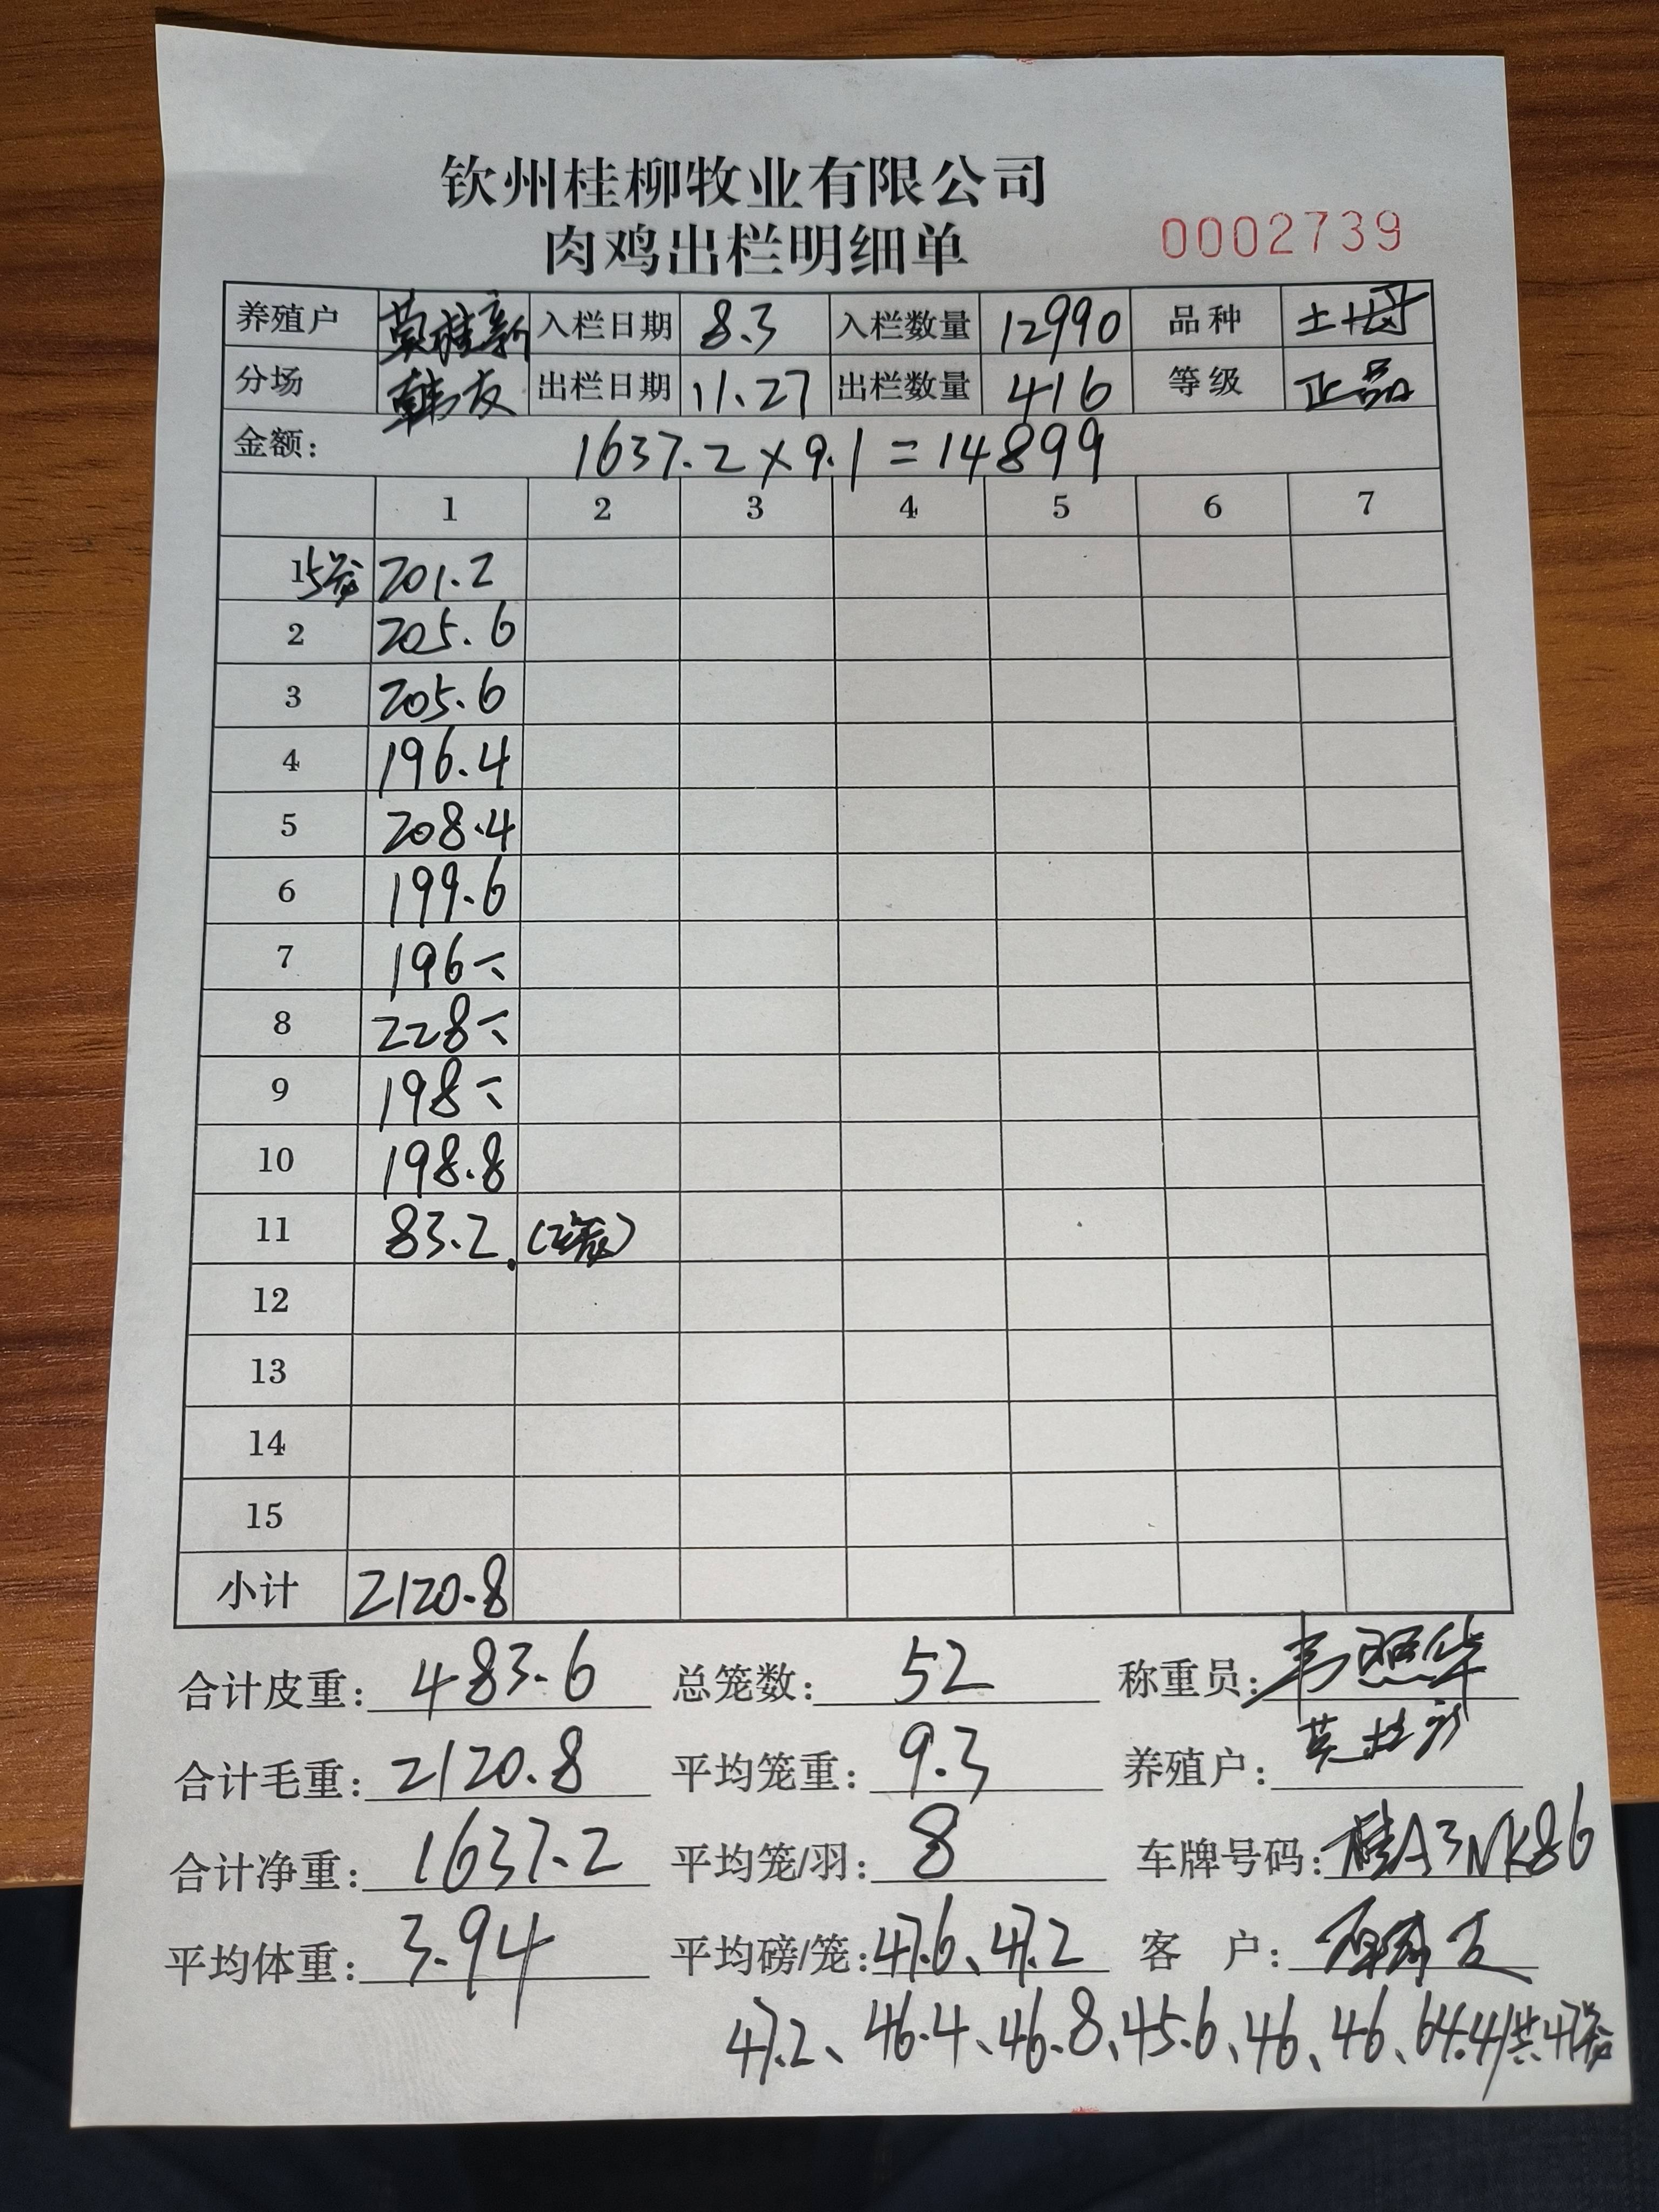 钦州桂柳牧业有限公司
肉鸡出栏明细单 0002739
养殖户 莫桂新 入栏日期 8.3 入栏数量 12990 品种 土母
分场 韩友 出栏日期 11.27 出栏数量 416 等级 正品
金额: 1637.2×9.1=14899
1 2 3 4 5 6 7
1 5笼 201.2
2 205.6
3 205.6
4 196.4
5 208.4
6 199.6
7 196
8 228
9 198
10 198.8
11 83.2 (2笼)
12
13
14
15
小计 2120.8
合计皮重: 483.6 总笼数: 52 称重员: 韦照华
合计毛重: 2120.8 平均笼重: 9.3 养殖户: 莫桂新
合计净重: 1637.2 平均笼/羽: 8 车牌号码: 桂A3NK86
平均体重: 3.94 平均磅/笼: 47.6、47.2 客 户:
47.2、46.4、46.8、45.6、46、46、64.4/共47笼